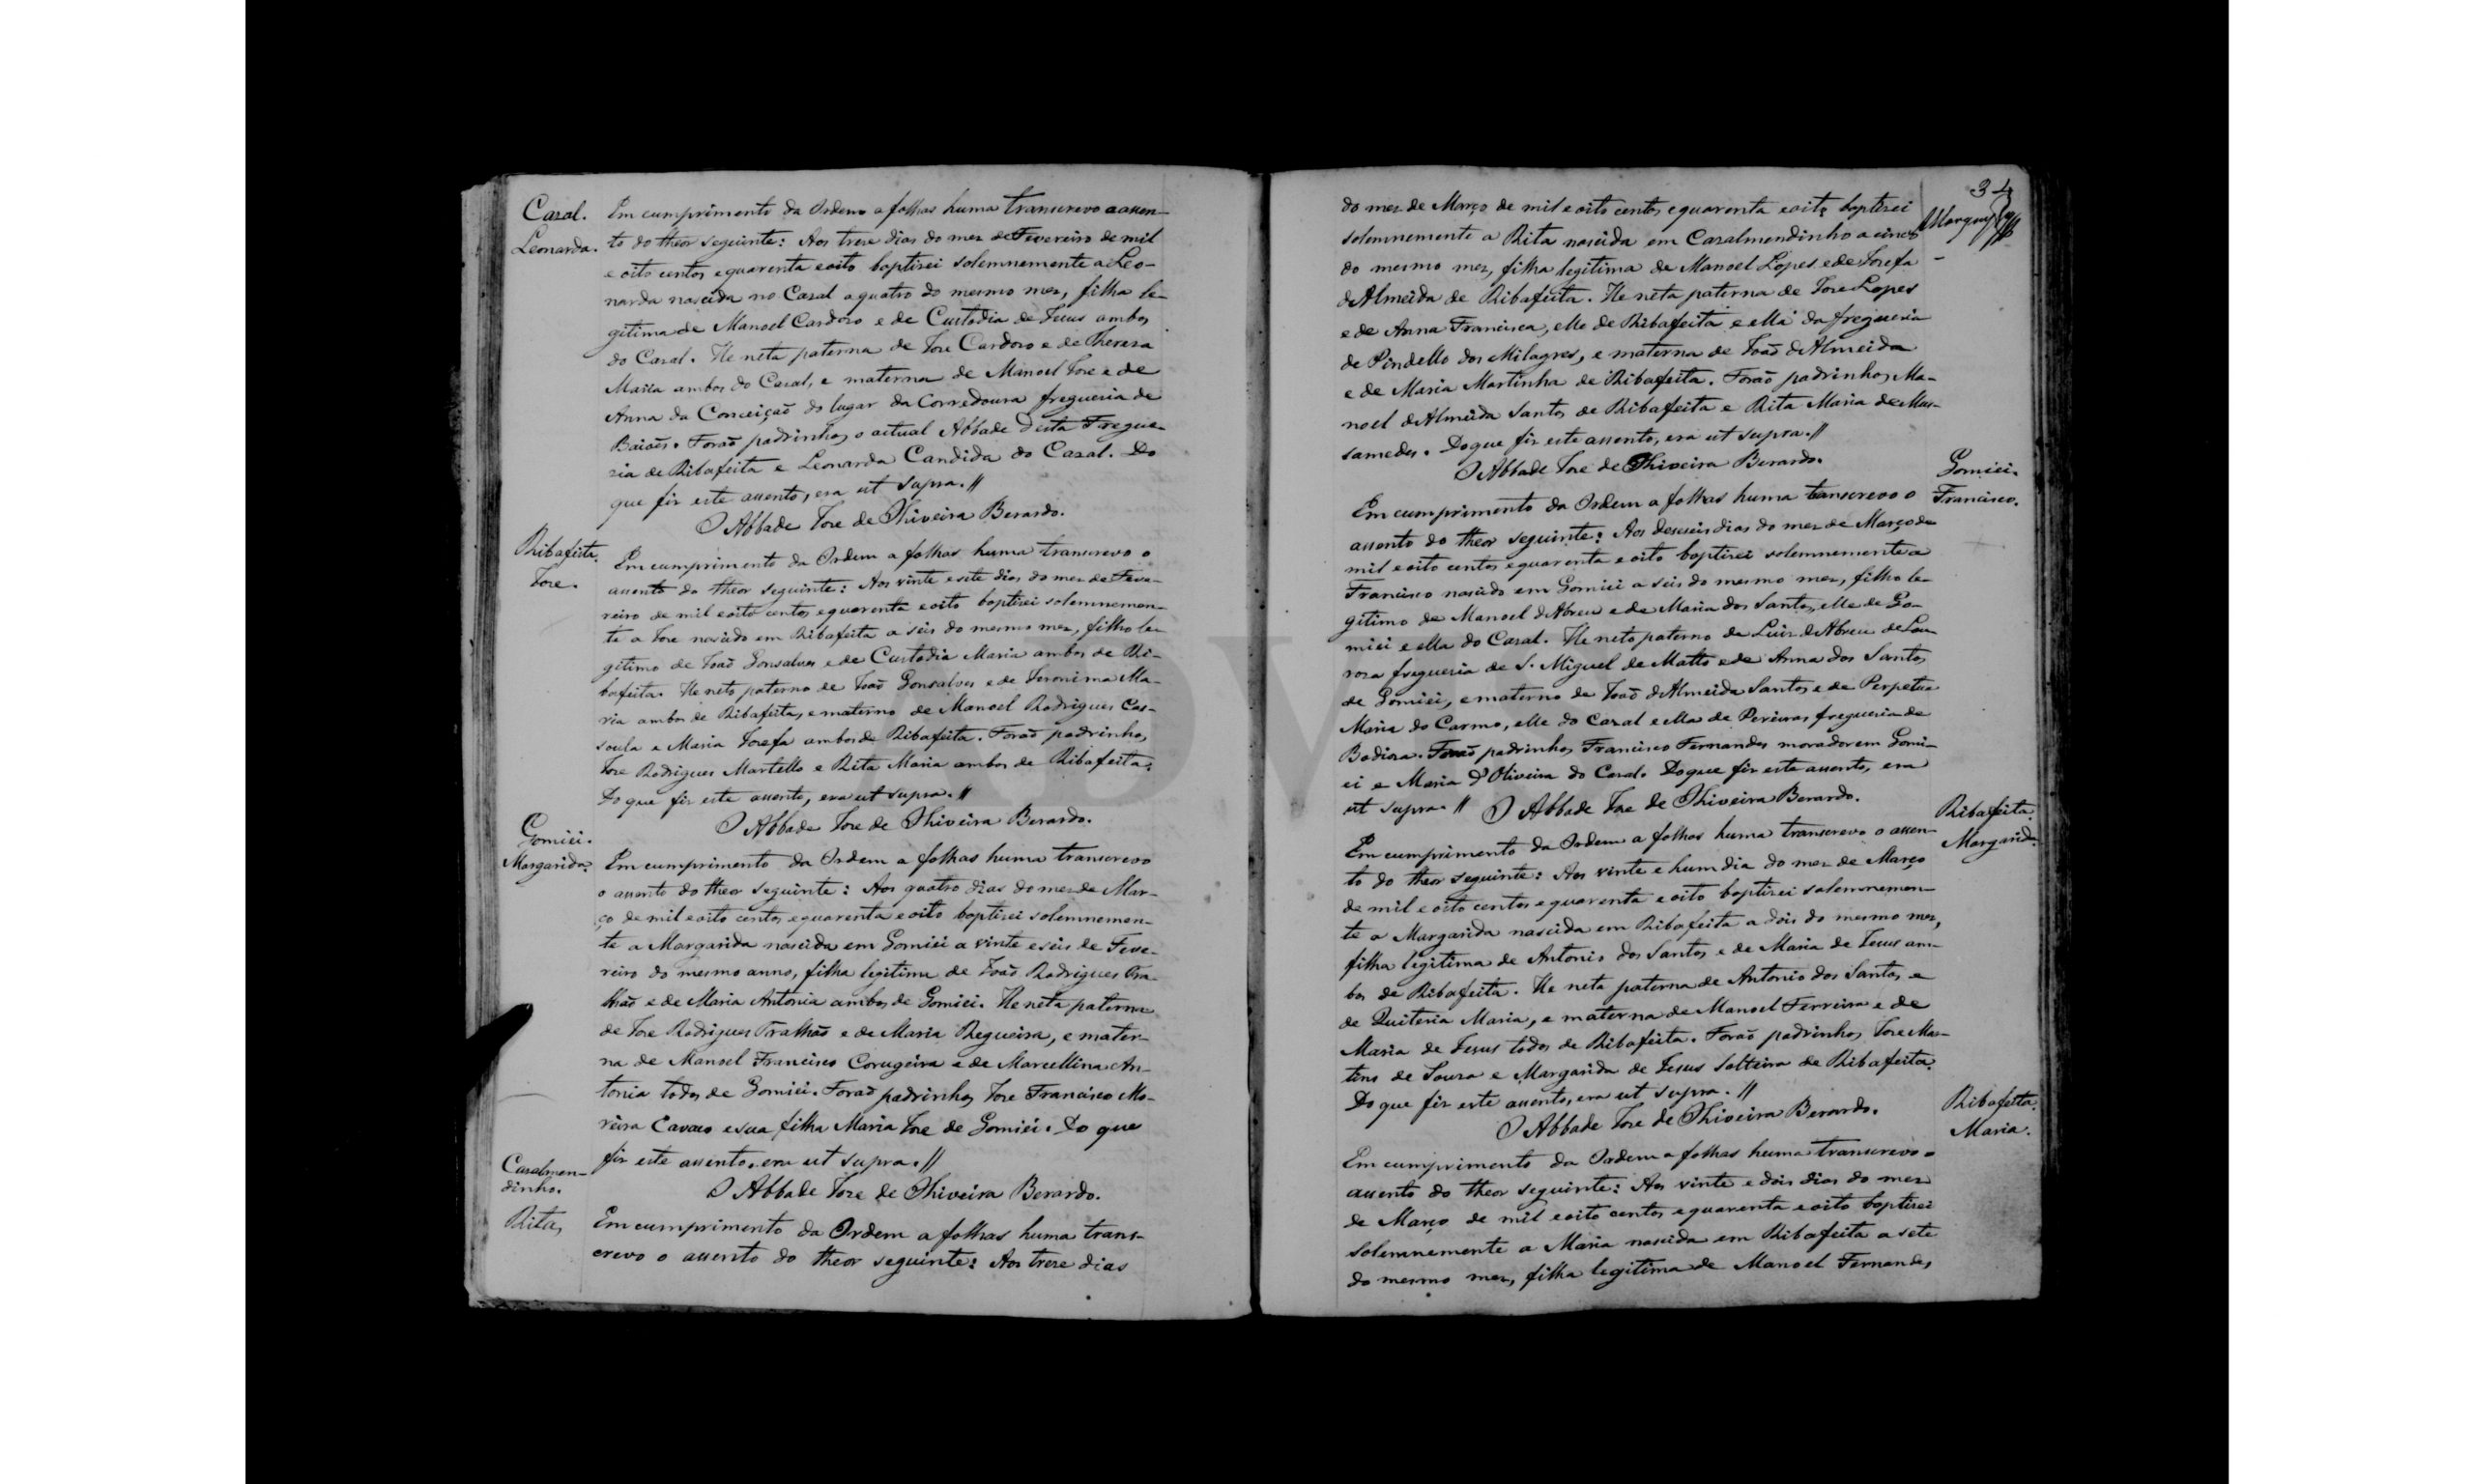 Casal.
Leonarda.
Em cumprimento da Ordem a folhas huma transcrevo o assen-
to do theor seguinte: Aos trese dias do mez de Fevereiro de mil
e oito centos e quarenta e oito baptisei solemnemente a Leo-
narda nascida no Casal a quatro do mesmo mez, filha le-
gitima de Manoel Cardozo e de Custodia de Jesus ambos
do Casal. He neta paterna de Joze Cardozo e de Thereza
Maria ambos do Casal, e materna de Manoel Joze e de
Anna da Conceição do lugar da Corredoura freguesia de
Baiões. Forão padrinhos o actual Abbade desta Fregue-
zia de Ribafeita e Leonarda Candida do Casal. Do
que fiz este assento, era ut supra. //
O Abbade Joze de Oliveira Berardo.
Ribafeita.
Joze.
Em cumprimento da Ordem a folhas huma transcrevo o
assento do theor seguinte: Aos vinte e sete dias do mez de Feve-
reiro de mil e oito centos e quarenta e oito baptisei solemnemen-
te a Joze nascido em Ribafeita a seis do mesmo mez, filho le-
gitimo de João Gonsalves e de Custodia Maria ambos de Ri-
bafeita. He neto paterno de João Gonsalves e de Jeronima Ma-
ria ambos de Ribafeita, e materno de Manoel Rodrigues Cas-
soula e Maria Jozefa ambos de Ribafeita. Forão padrinhos
Joze Rodrigues Martello e Rita Maria ambos de Ribafeita.
Do que fiz este assento, era ut supra. //
O Abbade Joze de Oliveira Berardo.
Gomiei.
Margarida.
Em cumprimento da Ordem a folhas huma transcrevo
o assento do theor seguinte: Aos quatro dias do mez de Mar-
ço de mil e oito centos e quarenta e oito baptisei solemnemen-
te a Margarida nascida em Gomiei a vinte e seis de Feve-
reiro do mesmo anno, filha legitima de João Rodrigues Tra-
lhão e de Maria Antonia ambos de Gomiei. He neta paterna
de Joze Rodrigues Tralhão e de Maria Regueira, e mater-
na de Manoel Francisco Corugeira e de Marcellina An-
tonia todos de Gomiei. Forão padrinhos Joze Francisco Mo-
reira Cavaco e sua filha Maria Joze de Gomiei. Do que
fiz este assento, era ut supra. //
O Abbade Joze de Oliveira Berardo.
Casalmen-
dinho.
Rita,
Em cumprimento da Ordem a folhas huma trans-
crevo o assento do theor seguinte: Aos treze dias
34
Marques
do mez de Março de mil e oito centos e quarenta e oito baptisei
solemnemente a Rita nascida em Casalmendinho a cinco
do mesmo mez, filha legitima de Manoel Lopes e de Jozefa
d'Almeida de Ribafeita. He neta paterna de Joze Lopes
e de Anna Francisca, elle de Ribafeita e ella da freguesia
de Pindello dos Milagres, e materna de João d'Almeida
e de Maria Martinha de Ribafeita. Forão padrinhos Ma-
noel d'Almeida Santos de Ribafeita e Rita Maria de Mas-
samedes. Do que fiz este assento, era ut supra. //
O Abbade Joze de Oliveira Berardo.
Gomiei.
Francisco.
Em cumprimento da Ordem a folhas huma transcrevo o
assento do theor seguinte: Aos deseseis dias do mez de Março de
mil e oito centos e quarenta e oito baptisei solemnemente a
Francisco nascido em Gomiei a seis do mesmo mez, filho le-
gitimo de Manoel d'Abreu e de Maria dos Santos, elle de Go-
miei e ella do Casal. He neto paterno de Luiz d'Abreu de Lou-
roza freguesia de S. Miguel de Matto e de Anna dos Santos
de Gomiei, e materno de João d'Almeida Santos e de Perpetua
Maria do Carmo, elle do Casal e ella de Pereiras freguesia de
Bodiosa. Forão padrinhos Francisco Fernandes morador em Gomi-
ei e Maria d'Oliveira do Casal. Do que fiz este assento, era
ut supra. // O Abbade Joze de Oliveira Berardo.
Ribafeita.
Margarida.
Em cumprimento da Ordem a folhas huma transcrevo o assen-
to do theor seguinte: Aos vinte e hum dia do mez de Março
de mil e oito centos e quarenta e oito baptisei solemnemen-
te a Margarida nascida em Ribafeita a dois do mesmo mez,
filha legitima de Antonio dos Santos e de Maria de Jesus am-
bos de Ribafeita. He neta paterna de Antonio dos Santos e
de Quiteria Maria, e materna de Manoel Ferreira e de
Maria de Jesus todos de Ribafeita. Forão padrinhos Joze Mar-
tins de Souza e Margarida de Jesus solteira de Ribafeita.
Do que fiz este assento, era ut supra. //
O Abbade Joze de Oliveira Berardo.
Ribafeita.
Maria.
Em cumprimento da Ordem a folhas huma transcrevo o
assento do theor seguinte: Aos vinte e dois dias do mez
de Março de mil e oito centos e quarenta e oito baptisei
solemnemente a Maria nascida em Ribafeita a sete
do mesmo mez, filha legitima de Manoel Fernandes